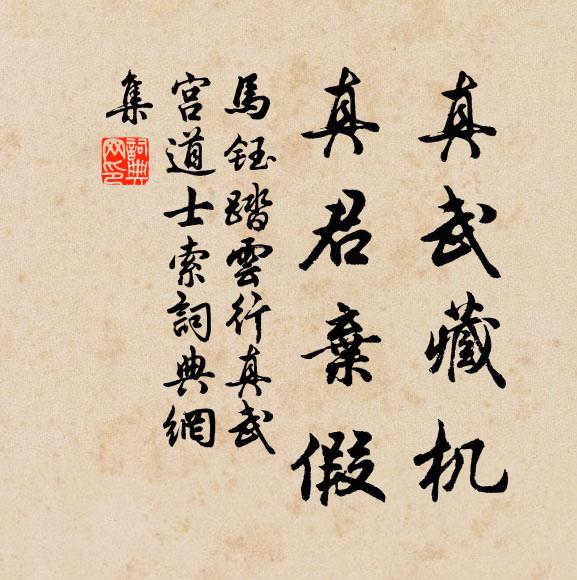 真武藏机
真君棄假
馬鈺踏雲行真武
宫道士索詞典網
集
詞典
网印